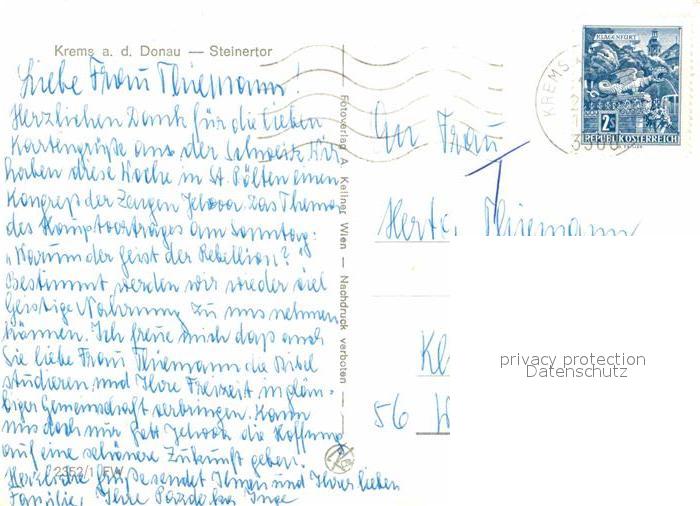 Krems a. d. Donau — Steinertor
Liebe Frau Thiemann!
Herzlichen Dank für die lieben
Kartengrüße aus der Schweiz. Wir
haben diese Woche in St. Pölten einen
Kongreß der Zeugen Jehova. Das Thema
des Hauptvortrages am Sonntag:
"Warum der Geist der Rebellion?"
Bestimmt werden wir wieder viel
Geistige Nahrung zu uns nehmen
können. Ich freue mich daß auch
Sie liebe Frau Thiemann die Bibel
studieren und Ihre Freizeit in gläu-
biger Gemeinschaft verbringen. Kann
uns doch nur Gott Jehova die Hoffnung
auf eine schönere Zukunft geben.
Herzliche Grüße sendet Ihnen und Ihrer lieben
Familie, Ihre Inge
2352/1 FW
Fotoverlag A. Kellner Wien — Nachdruck verboten —
KREMS
3500
KLAGENFURT
2S
REPUBLIK ÖSTERREICH
An Frau
Thiemann
Kl
56 W
privacy protection
Datenschutz